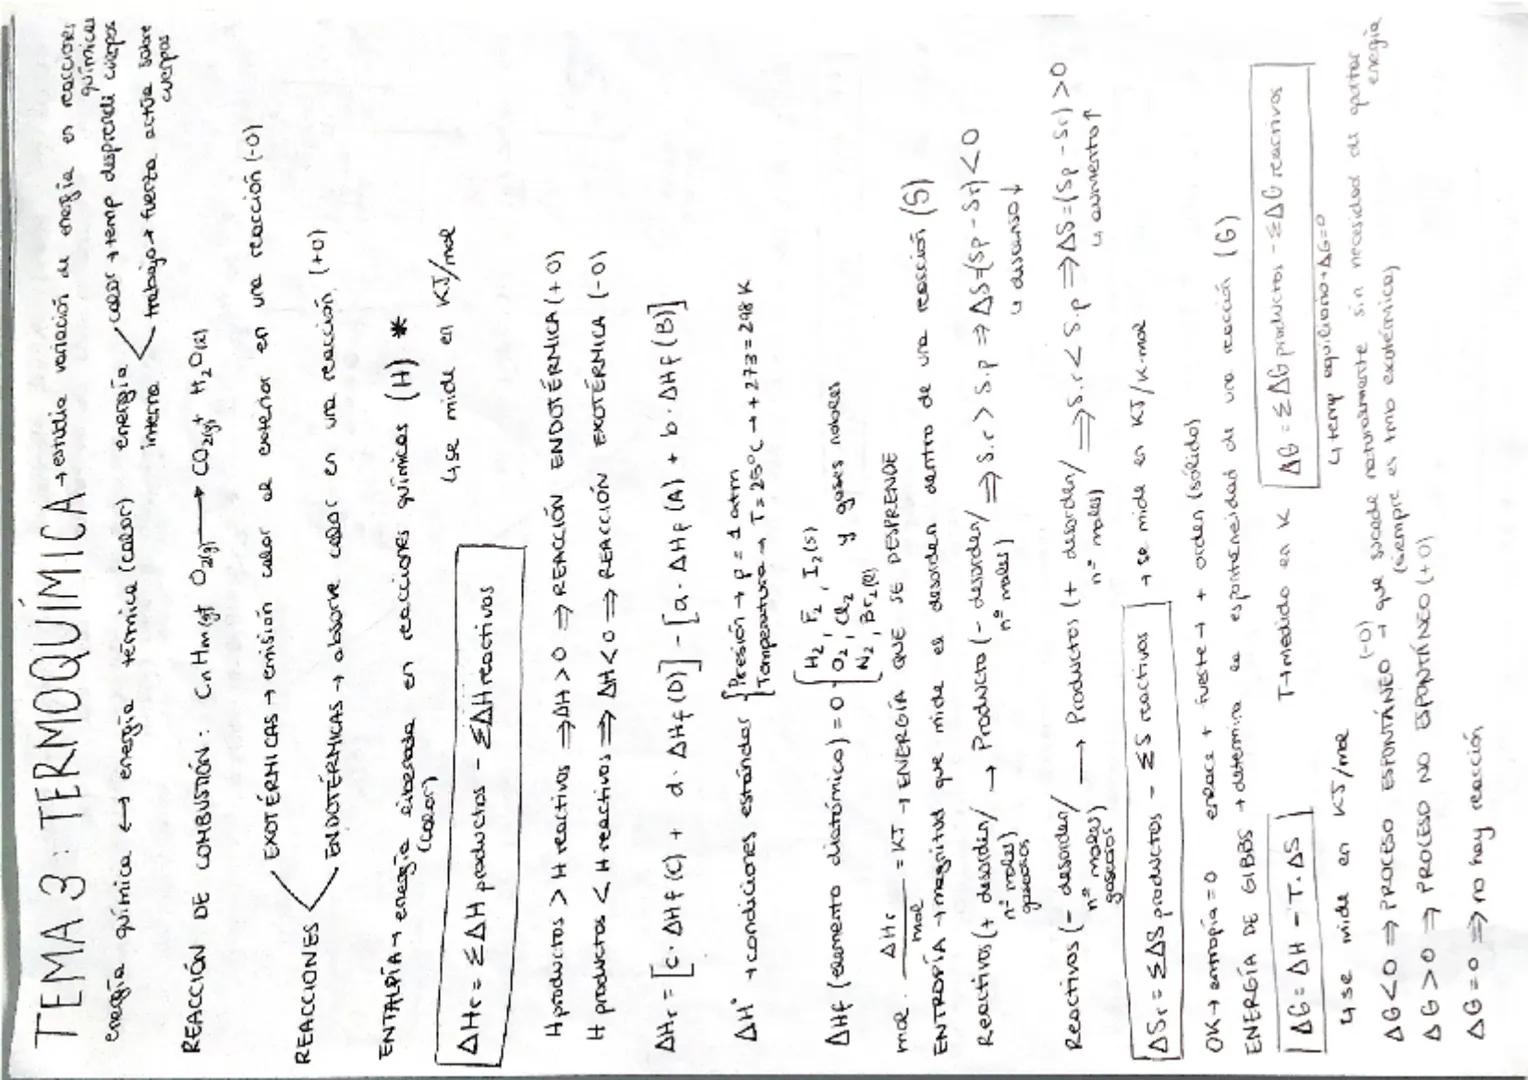 TEMA 3: TERMOQUÍMICA → estudia variación de energía en reacciones químicas
energía química ↔ energía térmica (calor) energía interna
calor → temp desprendi cuerpos
trabajo → fuerza actúa sobre cuerpos
REACCIÓN DE COMBUSTIÓN: CnHm(g) O2(g) → CO2(g) + H2O(l)
REACCIONES
EXOTÉRMICAS → emisión calor al exterior en una reacción (-0)
ENDOTÉRMICAS → absorve calor en una reacción (+0)
ENTALPÍA → energía liberada en reacciones químicas (H) *
(calor)
↳ se mide en KJ/mol
ΔHr = ΣΔH productos - ΣΔH reactivos
H productos > H reactivos ⇒ ΔH > 0 ⇒ REACCIÓN ENDOTÉRMICA (+0)
H productos < H reactivos ⇒ ΔH < 0 ⇒ REACCIÓN EXOTÉRMICA (-0)
ΔHr = [c · ΔHf (C) + d · ΔHf (D)] - [a · ΔHf (A) + b · ΔHf (B)]
ΔH° → condiciones estándar { Presión → p = 1 atm
Temperatura → T = 25°C → + 273 = 298 K
ΔHf (elemento diatómico) = 0 { H2, F2, I2(s)
O2, Cl2 y gases nobles
N2, Br2(l)
mol · ΔHr / mol = KJ → ENERGÍA QUE SE DESPRENDE
ENTROPÍA → magnitud que mide el desorden dentro de una reacción (S)
Reactivos (+ desorden/ nº moles) gaseosos → Producto (- desorden/ nº moles) ⇒ S.r > S.p ⇒ ΔS=(Sp - Sr) < 0
↳ descenso ↓
Reactivos (- desorden/ nº moles) gaseosos → Productos (+ desorden/ nº moles) ⇒ S.r < S.p ⇒ ΔS=(Sp - Sr) > 0
↳ aumento ↑
ΔSr = ΣΔS productos - ΣS reactivos → se mide en KJ/K·mol
0K → entropía = 0 enlace + fuerte → + orden (sólidos)
ENERGÍA DE GIBBS → determina la espontaneidad de una reacción (G)
ΔG = ΔH - T·ΔS T → medido en K ΔG = ΣΔG productos - ΣΔG reactivos
↳ se mide en KJ/mol ↳ temp equilibrio → ΔG=0
ΔG < 0 ⇒ PROCESO ESPONTÁNEO (-0) → que sucede naturalmente sin necesidad de aportar energía
(siempre es tmb exotérmica)
ΔG > 0 ⇒ PROCESO NO ESPONTÁNEO (+0)
ΔG = 0 ⇒ no hay reacción